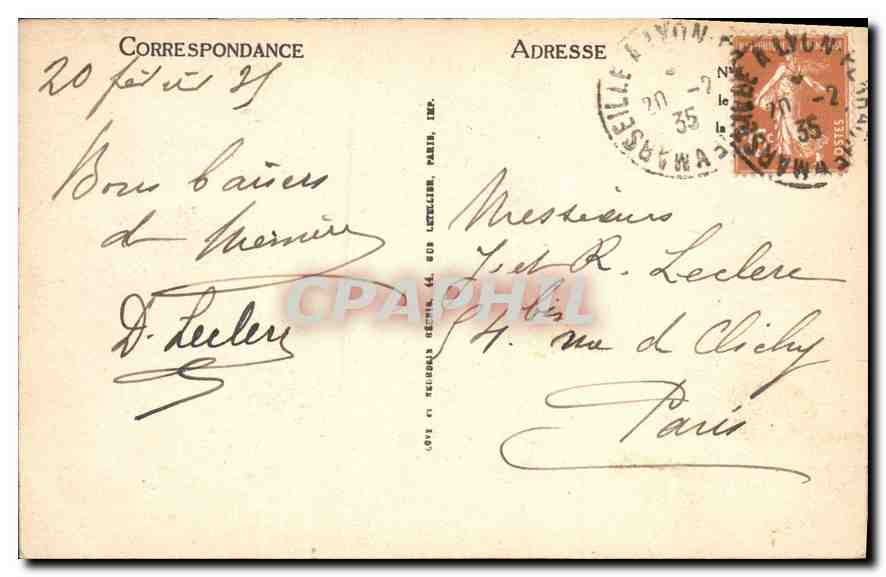 CORRESPONDANCE
20 février 35
Bons baisers
de Mémère
D. Leclerc
LEVY et NEURDEIN RÉUNIS, 44, RUE LETELLIER, PARIS, IMP.
ADRESSE
Messieurs
J. et R. Leclerc
54 bis rue de Clichy
Paris
MARSEILLE A LYON
20 -2
35
MARSEILLE A LYON
20 -2
35
POSTES
Nº
le
la
CPAPHIL